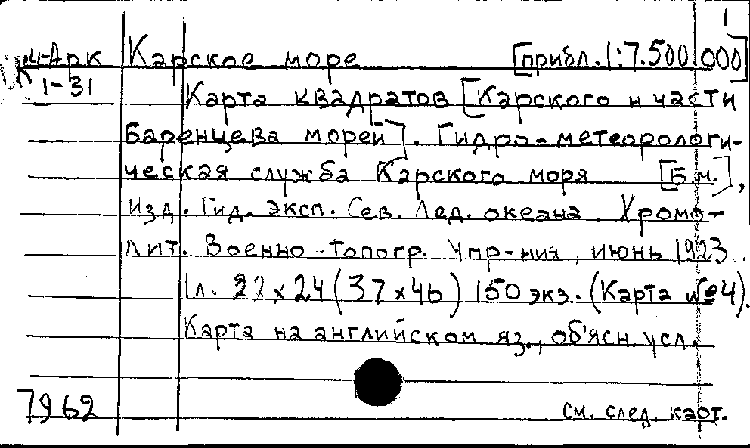 1
К 4-Арк Карское море [прибл. 1:7.500 000]
1-31
Карта квадратов [Карского и части
Баренцева морей]. Гидро-метеорологи-
ческая служба Карского моря [Б.м.],
Изд. Гид. Эксп. Сев. Лед. океана. Хромо-
лит. Военно-Топогр. Упр-ния, июнь 1923.
1л. 22x24 (37x46) 150 экз. (Карта №4).
Карта на английском яз., об'ясн. усл.
7962 см. след. карт.